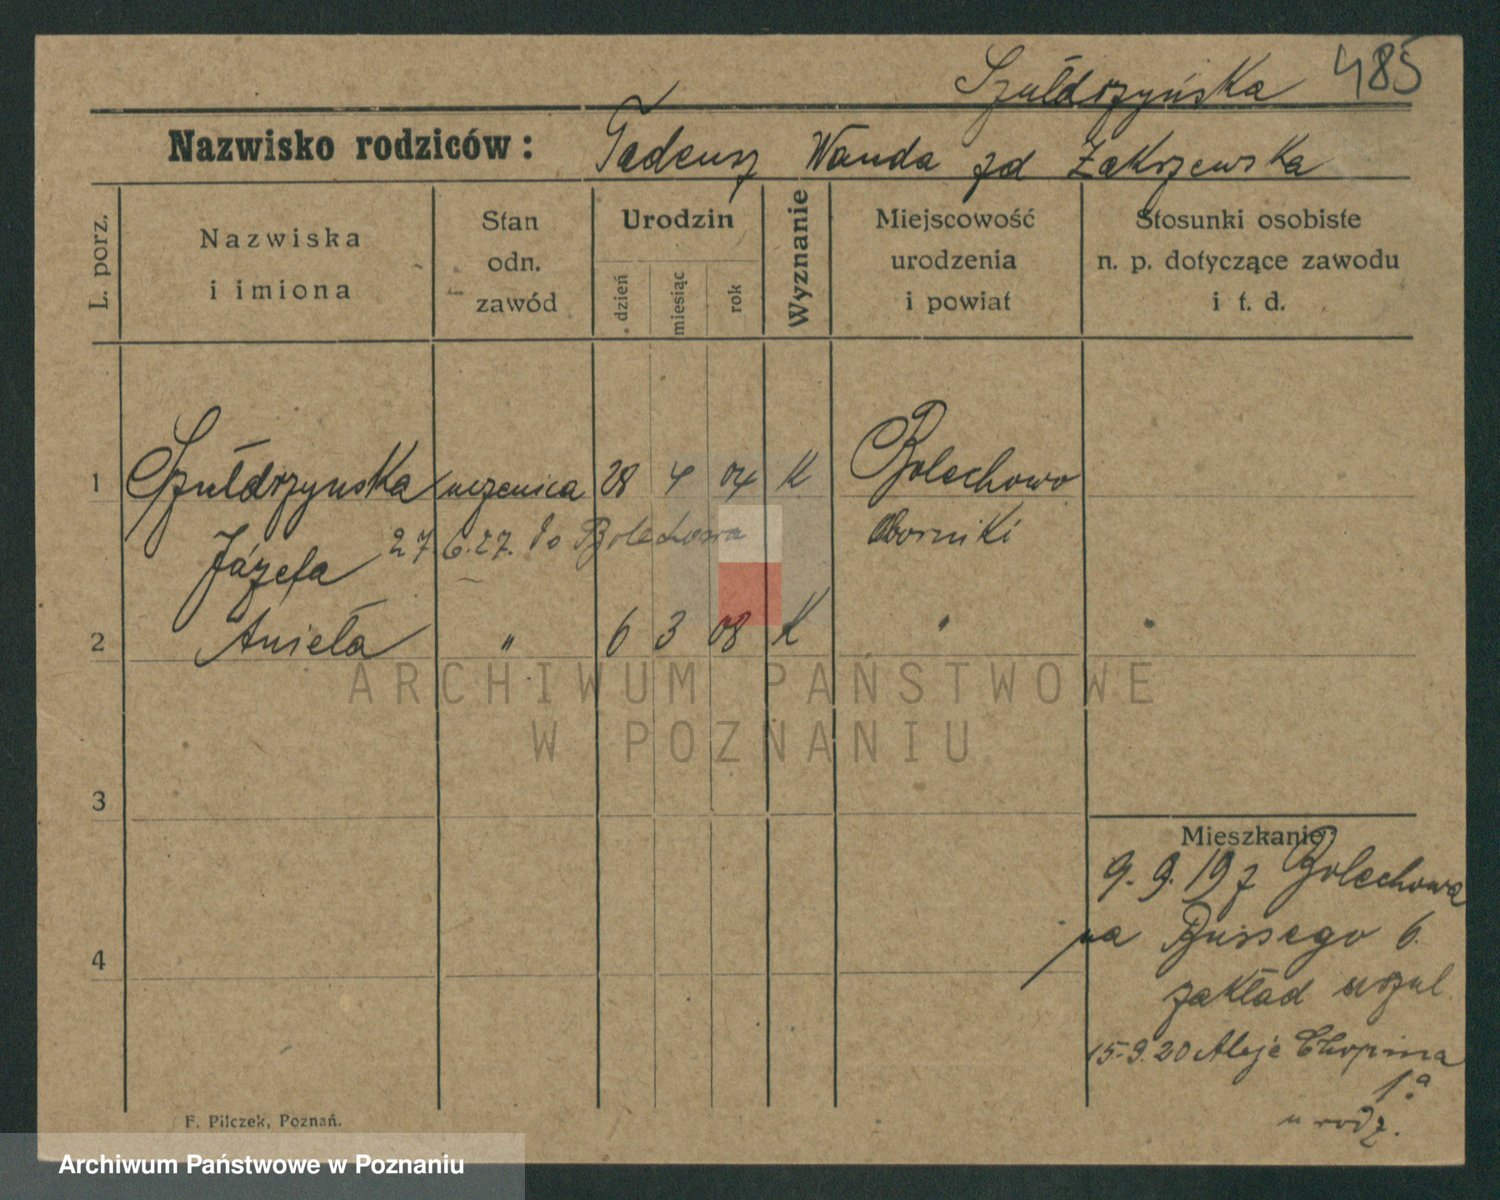 Szułdrzyńska 485
Nazwisko rodziców: Tadeusz Wanda zd Zakrzewska
L. porz.
Nazwiska
i imiona
Stan
odn.
zawód
Urodzin
dzień
miesiąc
rok
Wyznanie
Miejscowość
urodzenia
i powiat
Stosunki osobiste
n. p. dotyczące zawodu
i t. d.
1 Szułdrzynska uczenica 28 4 04 K Bolechowo
Józefa 27.6.27. do Bolechowa Oborniki
2 Aniela " 6 3 08 K " "
ARCHIWUM PAŃSTWOWE
W POZNANIU
3
Mieszkanie:
9.9.19 z Bolechowa
na Bussego 6.
4
zakład urszul
15.9.20 Aleje Chopina
1.a
u rodz.
F. Pilczek, Poznań.
Archiwum Państwowe w Poznaniu